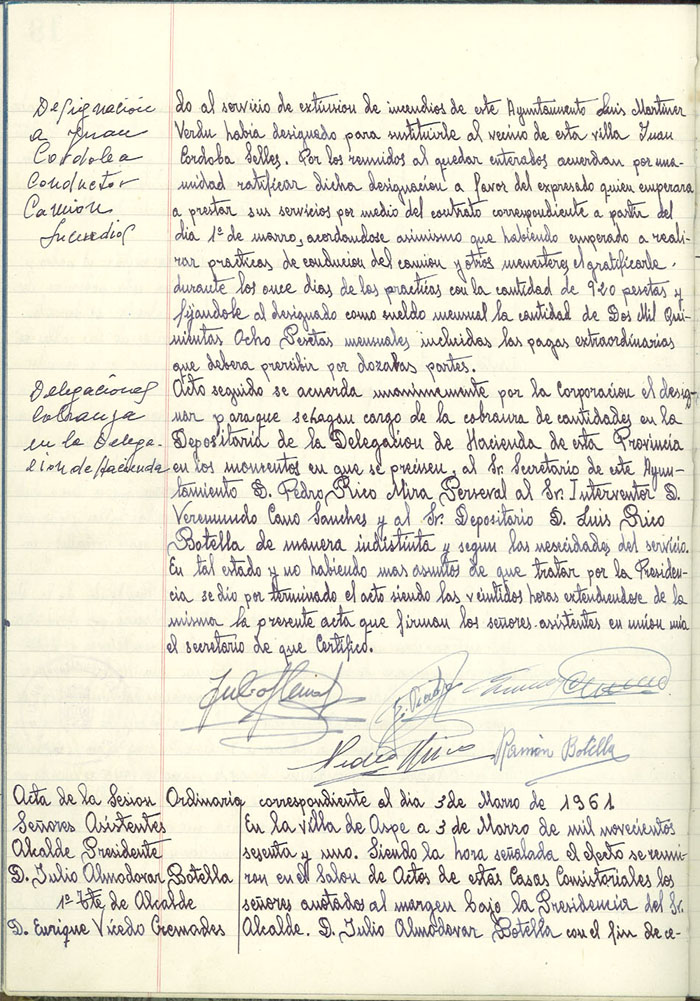 Designación
a Juan
Cordoba
Conductor
Camion
Incendios
do al servicio de extinsion de incendios de este Ayuntamiento Luis Martinez
Verdu habia designado para sustituirle al vecino de esta villa Juan
Cordoba Selles. Por los reunidos al quedar enterados acuerdan por una-
unidad ratificar dicha designacion a favor del expresado quien emperara
a prestar sus servicios por medio del contrato correspondiente a partir del
dia 1º de marzo, acordandose asimismo que habiendo emperado a reali-
zar practicas de conducion del camion y otros menesteres el gratificarle
durante los once dias de las practicas con la cantidad de 920 pesetas y
fijandole al designado como sueldo mensual la cantidad de Dos Mil Qui-
nientas Ocho Pesetas mensuales incluidas las pagas extraordinarias
que debera percibir por dozabas partes.
Delegaciones
Cobranza
en la Delega-
cion de Hacienda
Acto seguido se acuerda unanimemente por la Corporacion el desig-
nar para que se hagan cargo de la cobranza de cantidades en la
Depositaria de la Delegacion de Hacienda de esta Provincia
en los momentos en que se precisen, al Sr. Secretario de este Ayun-
tamiento D. Pedro Rico Mira Perseval al Sr. Interventor D.
Veremundo Cano Sanches y al Sr. Depositario D. Luis Rico
Botella de manera indistinta y segun las nesecidades del servicio.
En tal estado y no habiendo mas asuntos de que tratar por la Presiden-
cia se dio por terminado el acto siendo las veintidos horas extendiendose de la
misma la presente acta que firman los señores asistentes en union mia
el secretario de que Certifico.
Pedro Rico
Ramón Botella
Acta de la Sesion Ordinaria correspondiente al dia 3 de Marzo de 1961
Señores Asistentes
Alcalde Presidente
D. Julio Almodovar Botella
1º Tte de Alcalde
D. Enrique Vicedo Cremades
En la villa de Aspe a 3 de Marzo de mil novecientos
sesenta y uno. Siendo la hora señalada el efecto se reunie-
ron en el Salon de Actos de estas Casas Consistoriales los
señores anotados al margen bajo la Presidencia del Sr.
Alcalde. D. Julio Almodovar Botella con el fin de ce-